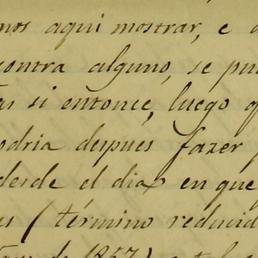 nos aqui mostrar, e
contra alguno, se pu
si entonce, luego q
odria despues fazer
desde el dia en que
(término reducid
de 1857)